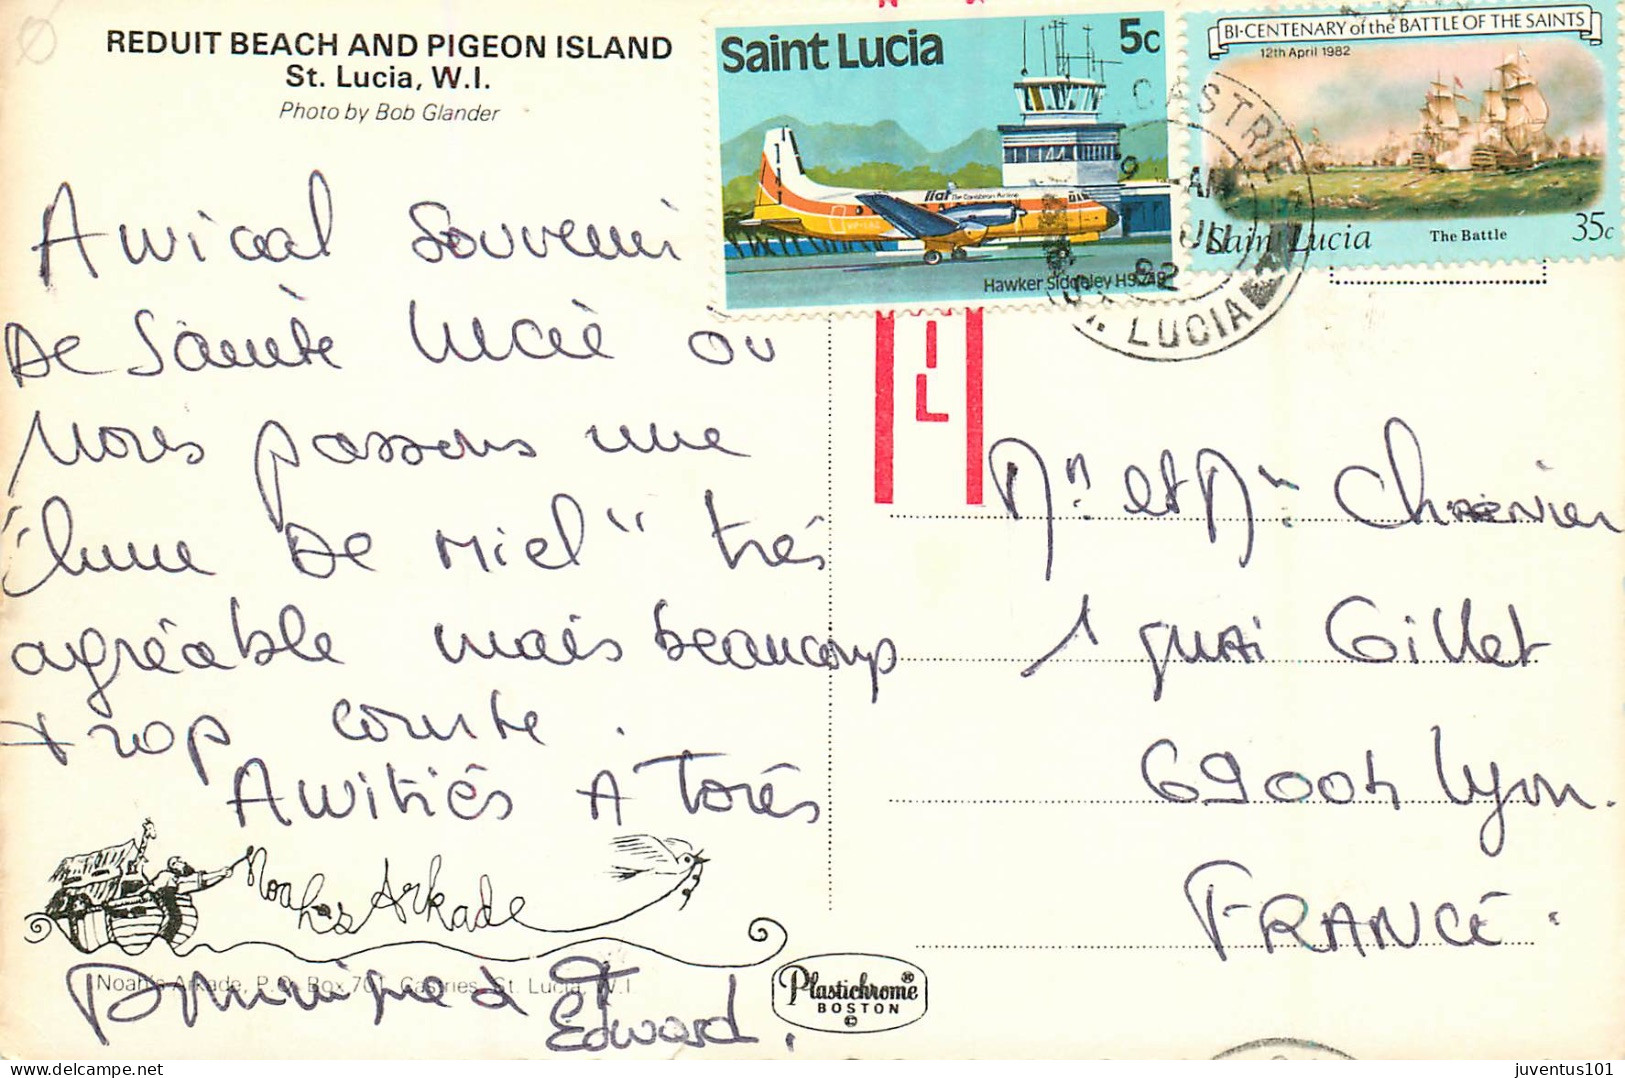 REDUIT BEACH AND PIGEON ISLAND
St. Lucia, W.I.
Photo by Bob Glander
Saint Lucia 5c
liat The Caribbean Airline
Hawker Siddeley HS.748
BI-CENTENARY of the BATTLE OF THE SAINTS
12th April 1982
Saint Lucia The Battle 35c
CASTRIE
9 AM
JU
82
LUCIA
Amical Souvenir
De Sainte Lucie où
Nous passons une
"lune De Miel" très
agréable mais beaucoup
trop courte.
Amitiés A Tous
Dominique et
Edward.
Mr. et Mme Charvier
1 quai Gillet
69004 Lyon.
FRANCE.
Noah's Arkade
Noah's Arkade, P.O. Box 701, Castries, St. Lucia, W.I.
Plastichrome ®
BOSTON
©
juventus101